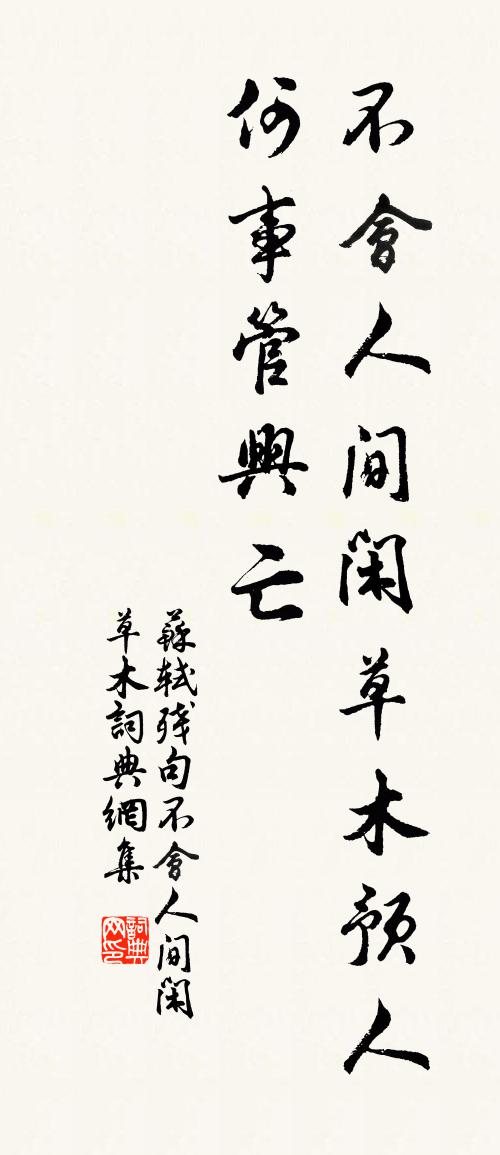 不會人間閑草木預人
何事管興亡
蘇軾殘句不會人間閑
草木詞典網集
詞典
网印